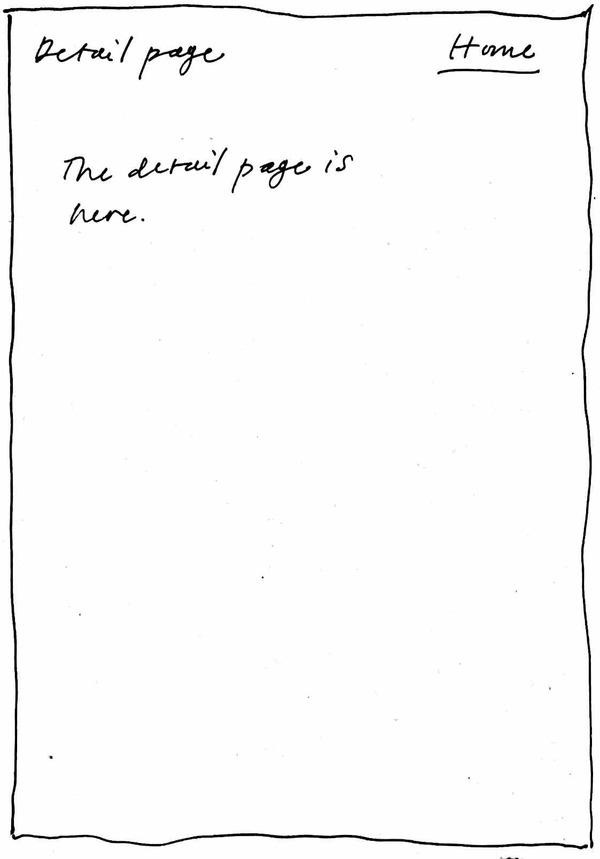 Detail page
Home
The detail page is
here.